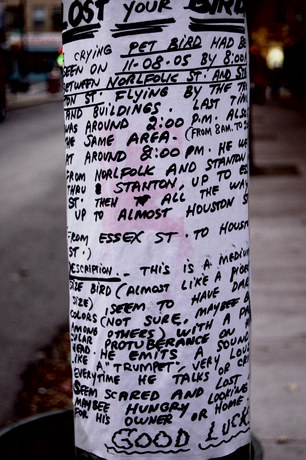 LOST YOUR BIRD
CRYING PET BIRD HAD BE
SEEN ON 11-08-05 BY 8:00
BETWEEN NORLFOLIC ST. AND
ON ST. FLYING BY THE
AND BUILDINGS. LAST TIM
WAS AROUND 2:00 P.M. ALSO
THE SAME AREA. (FROM 8AM. TO
AT AROUND 8:00 PM. HE W
FROM NORLFOLK AND STANTON
THRU & STANTON, UP TO ES
ST. THEN ALL THE WAY
UP TO ALMOST HOUSTON S
FROM ESSEX ST. TO HOUS
ST.)
DESCRIPTION. THIS IS A MEDIU
SIZE BIRD (ALMOST LIKE A
SIZE), SEEM TO HAVE DAR
COLORS (NOT SURE, MAYBEE B
AMONG OTHEES) WITH A
PROTUBERANCE ON
HEAD. HE EMITS A SOUND
LIKE A "TRUMPET" VERY LOU
EVERYTIME HE TALKS OR
SEEM SCARED AND LOST
MAYBEE HUNGRY OR LOOKING
FOR HIS OWNER HOME.
GOOD LUCK